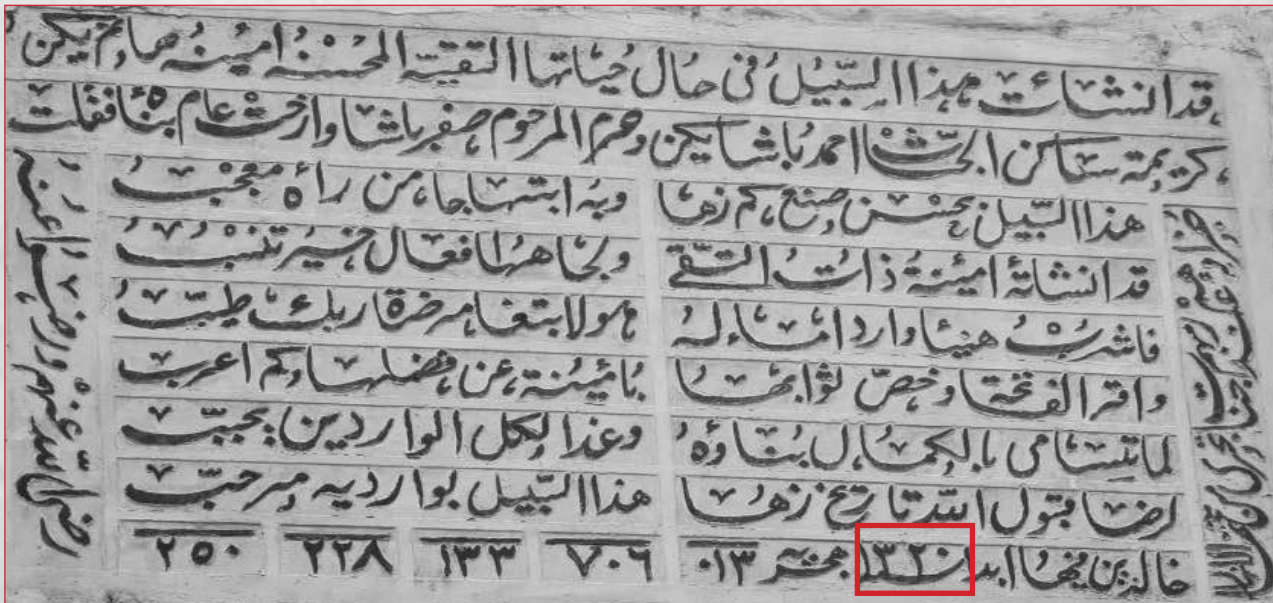 قد انشات هذا السبيل في حال حياتها التقية المحسنة امينه هانم يكن
كريمة ساكن الجنان احمد باشا يكن وحرم المرحوم صفر باشا وارخت عام بنائه فقلت
هذا السبيل بحسن صنع كم زها وبه ابتهاجا من راه معجب
قد انشاته امينة ذات التقى ولجاهها افعال خير تنسب
فاشرب هنيئا واردا مائاله مولا بتغا مرضاة ربك طيب
واقرا الفتحة وخص ثوابها بامينة عن فضلها وكم اعرب
لما تسامى بالكمال بناؤه وغدا لكل الواردين يحبب
ارضا قبول الله تاريخ زها هذا السبيل بوارديه مرحب
خالدين فيها ابدا سنة ١٣٢٠ هجريه ٠١٣ ٧٠٦ ١٣٣ ٢٢٨ ٢٥٠
رضى الله عنهم ورضوا عنه